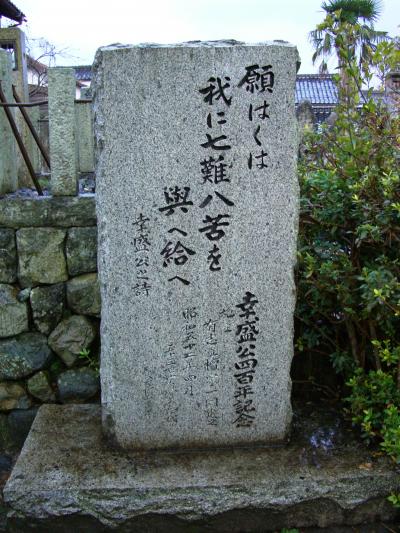 願はくは
我に七難八苦を
與へ給へ
幸盛公之詩
幸盛公四百年記念
昭和五十二年四月